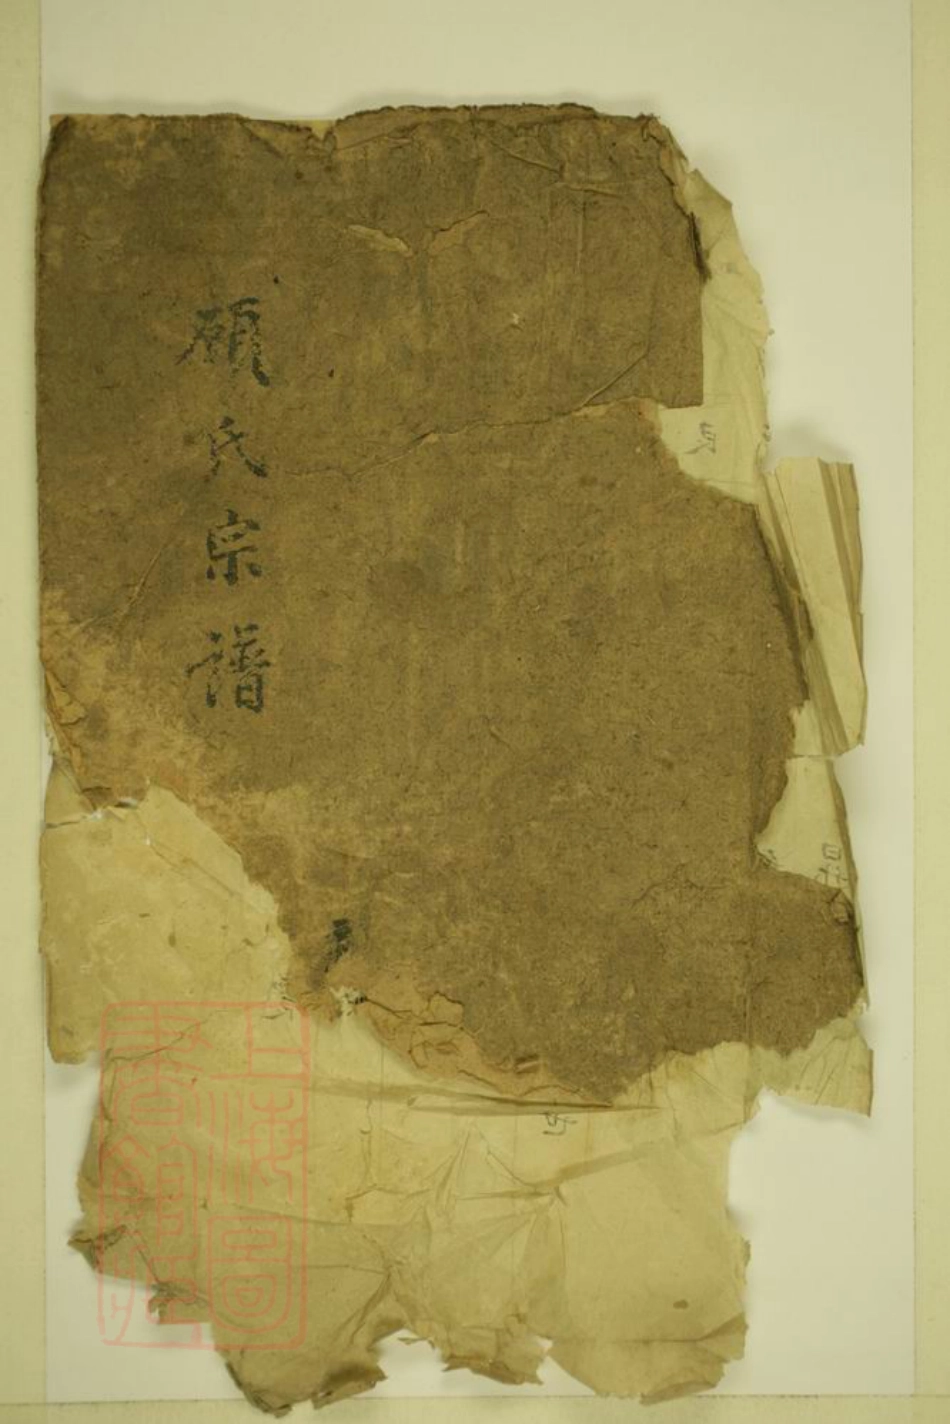 顧氏宗譜
上海圖書館藏